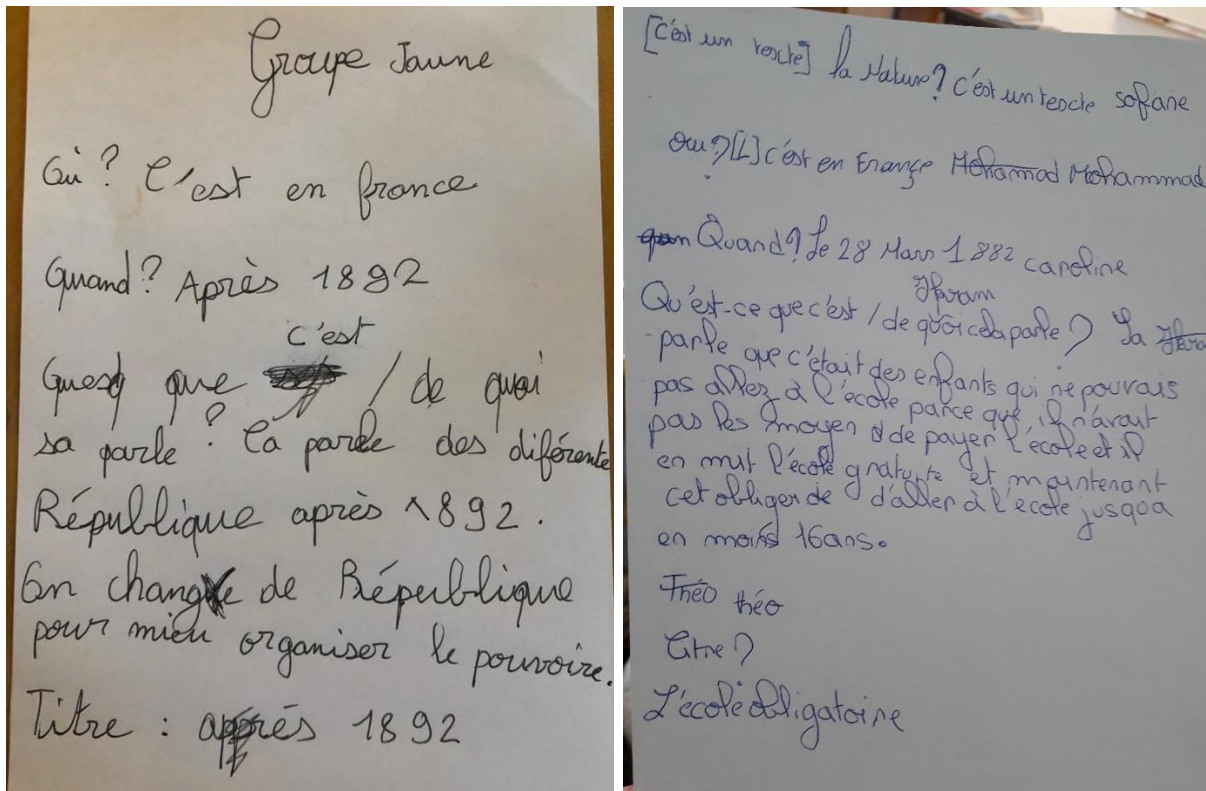 Groupe Jaune
Où? C'est en france
Quand? Après 1892
c'est
Quesq que / de quoi
sa parle? Ça parle des diférente
République après 1892.
On change de République
pour mieu organiser le pouvoire.
Titre : après 1892
[C'est un texcte] la Nature? C'est un texcte sofiane
Ou? [L] c'est en França Mohamad Mohammad
quan Quand? Le 28 Mars 1882 caroline
Ikram
Qu'est-ce que c'est / de quoi cela parle? Sa Ikra
parle que c'était des enfants qui ne pouvais
pas allez à l'école parce que il n'avait
pas les moyen de payer l'école et il
en mit l'école gratuite et maintenant
cet obliger de d'aller à l'école jusqoa
en moins 16 ans.
Théo théo
Titre?
L'école obligatoire